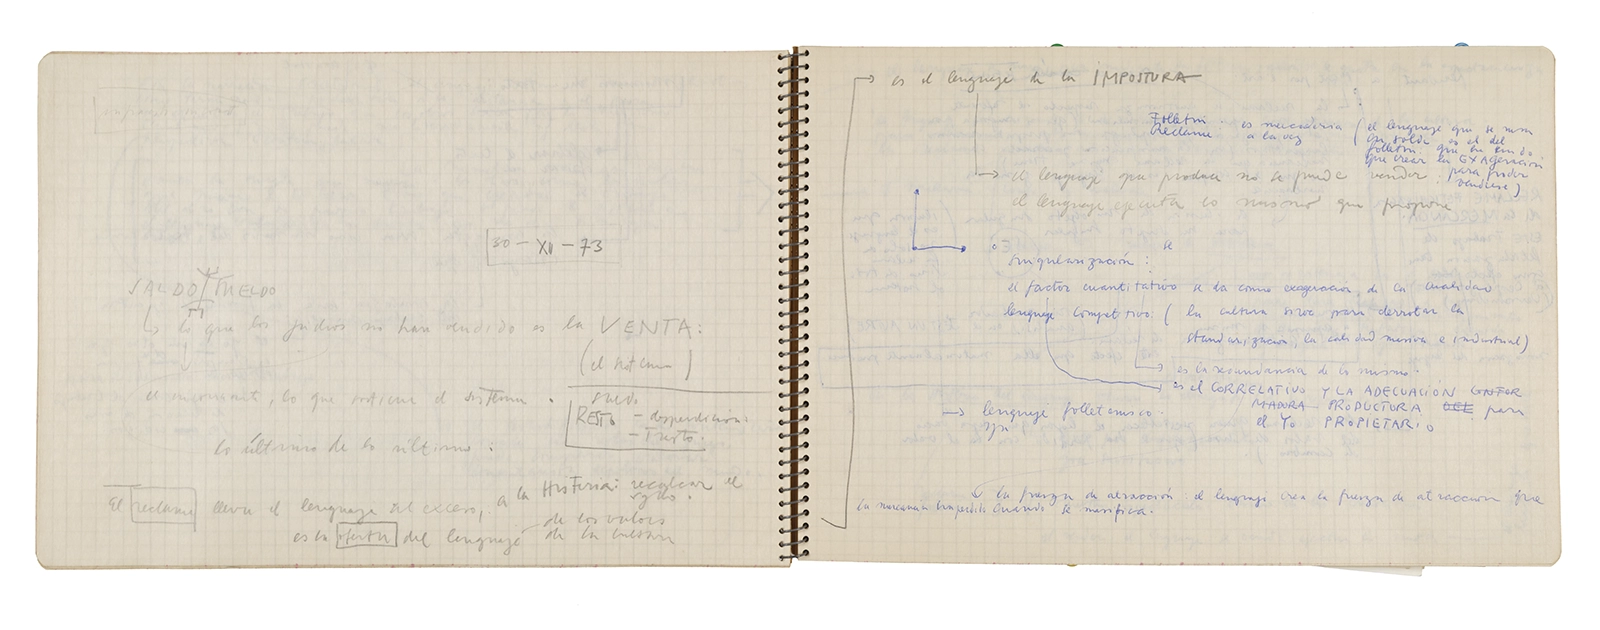 30 - XII - 73
SALDO
lo que los judíos no han vendido es la VENTA:
(el sistema)
lo que sostiene el sistema.
saldo
RESTO - desperdicio:
- Texto.
lo último de lo último:
El reclame lleva el lenguaje del exceso, a la Histeria: recalcar el
signo.
de los valores
es la oferta del lenguaje de la cultura
es el lenguaje de la IMPOSTURA
Folletín
Reclame: es mercadería (el lenguaje que se
a la vez
folletín que
que crear la EXAGERACIÓN
para poder
venderse)
el lenguaje que produce no se puede vender:
el lenguaje ejecuta lo mismo que propone
se
Singularización:
el factor cuantitativo se da como exageración de la cualidad
lenguaje competitivo: (la cultura sirve para derrotar la
standarización, la calidad masiva e industrial)
es la redundancia de lo mismo.
es el CORRELATIVO Y LA ADECUACIÓN CONFOR
MADORA PRODUCTORA DEL para
el YO PROPIETARIO
lenguaje folletinesco.
la fuerza de atracción: el lenguaje crea la fuerza de atracción que
la mercancía ha perdido cuando se masifica.